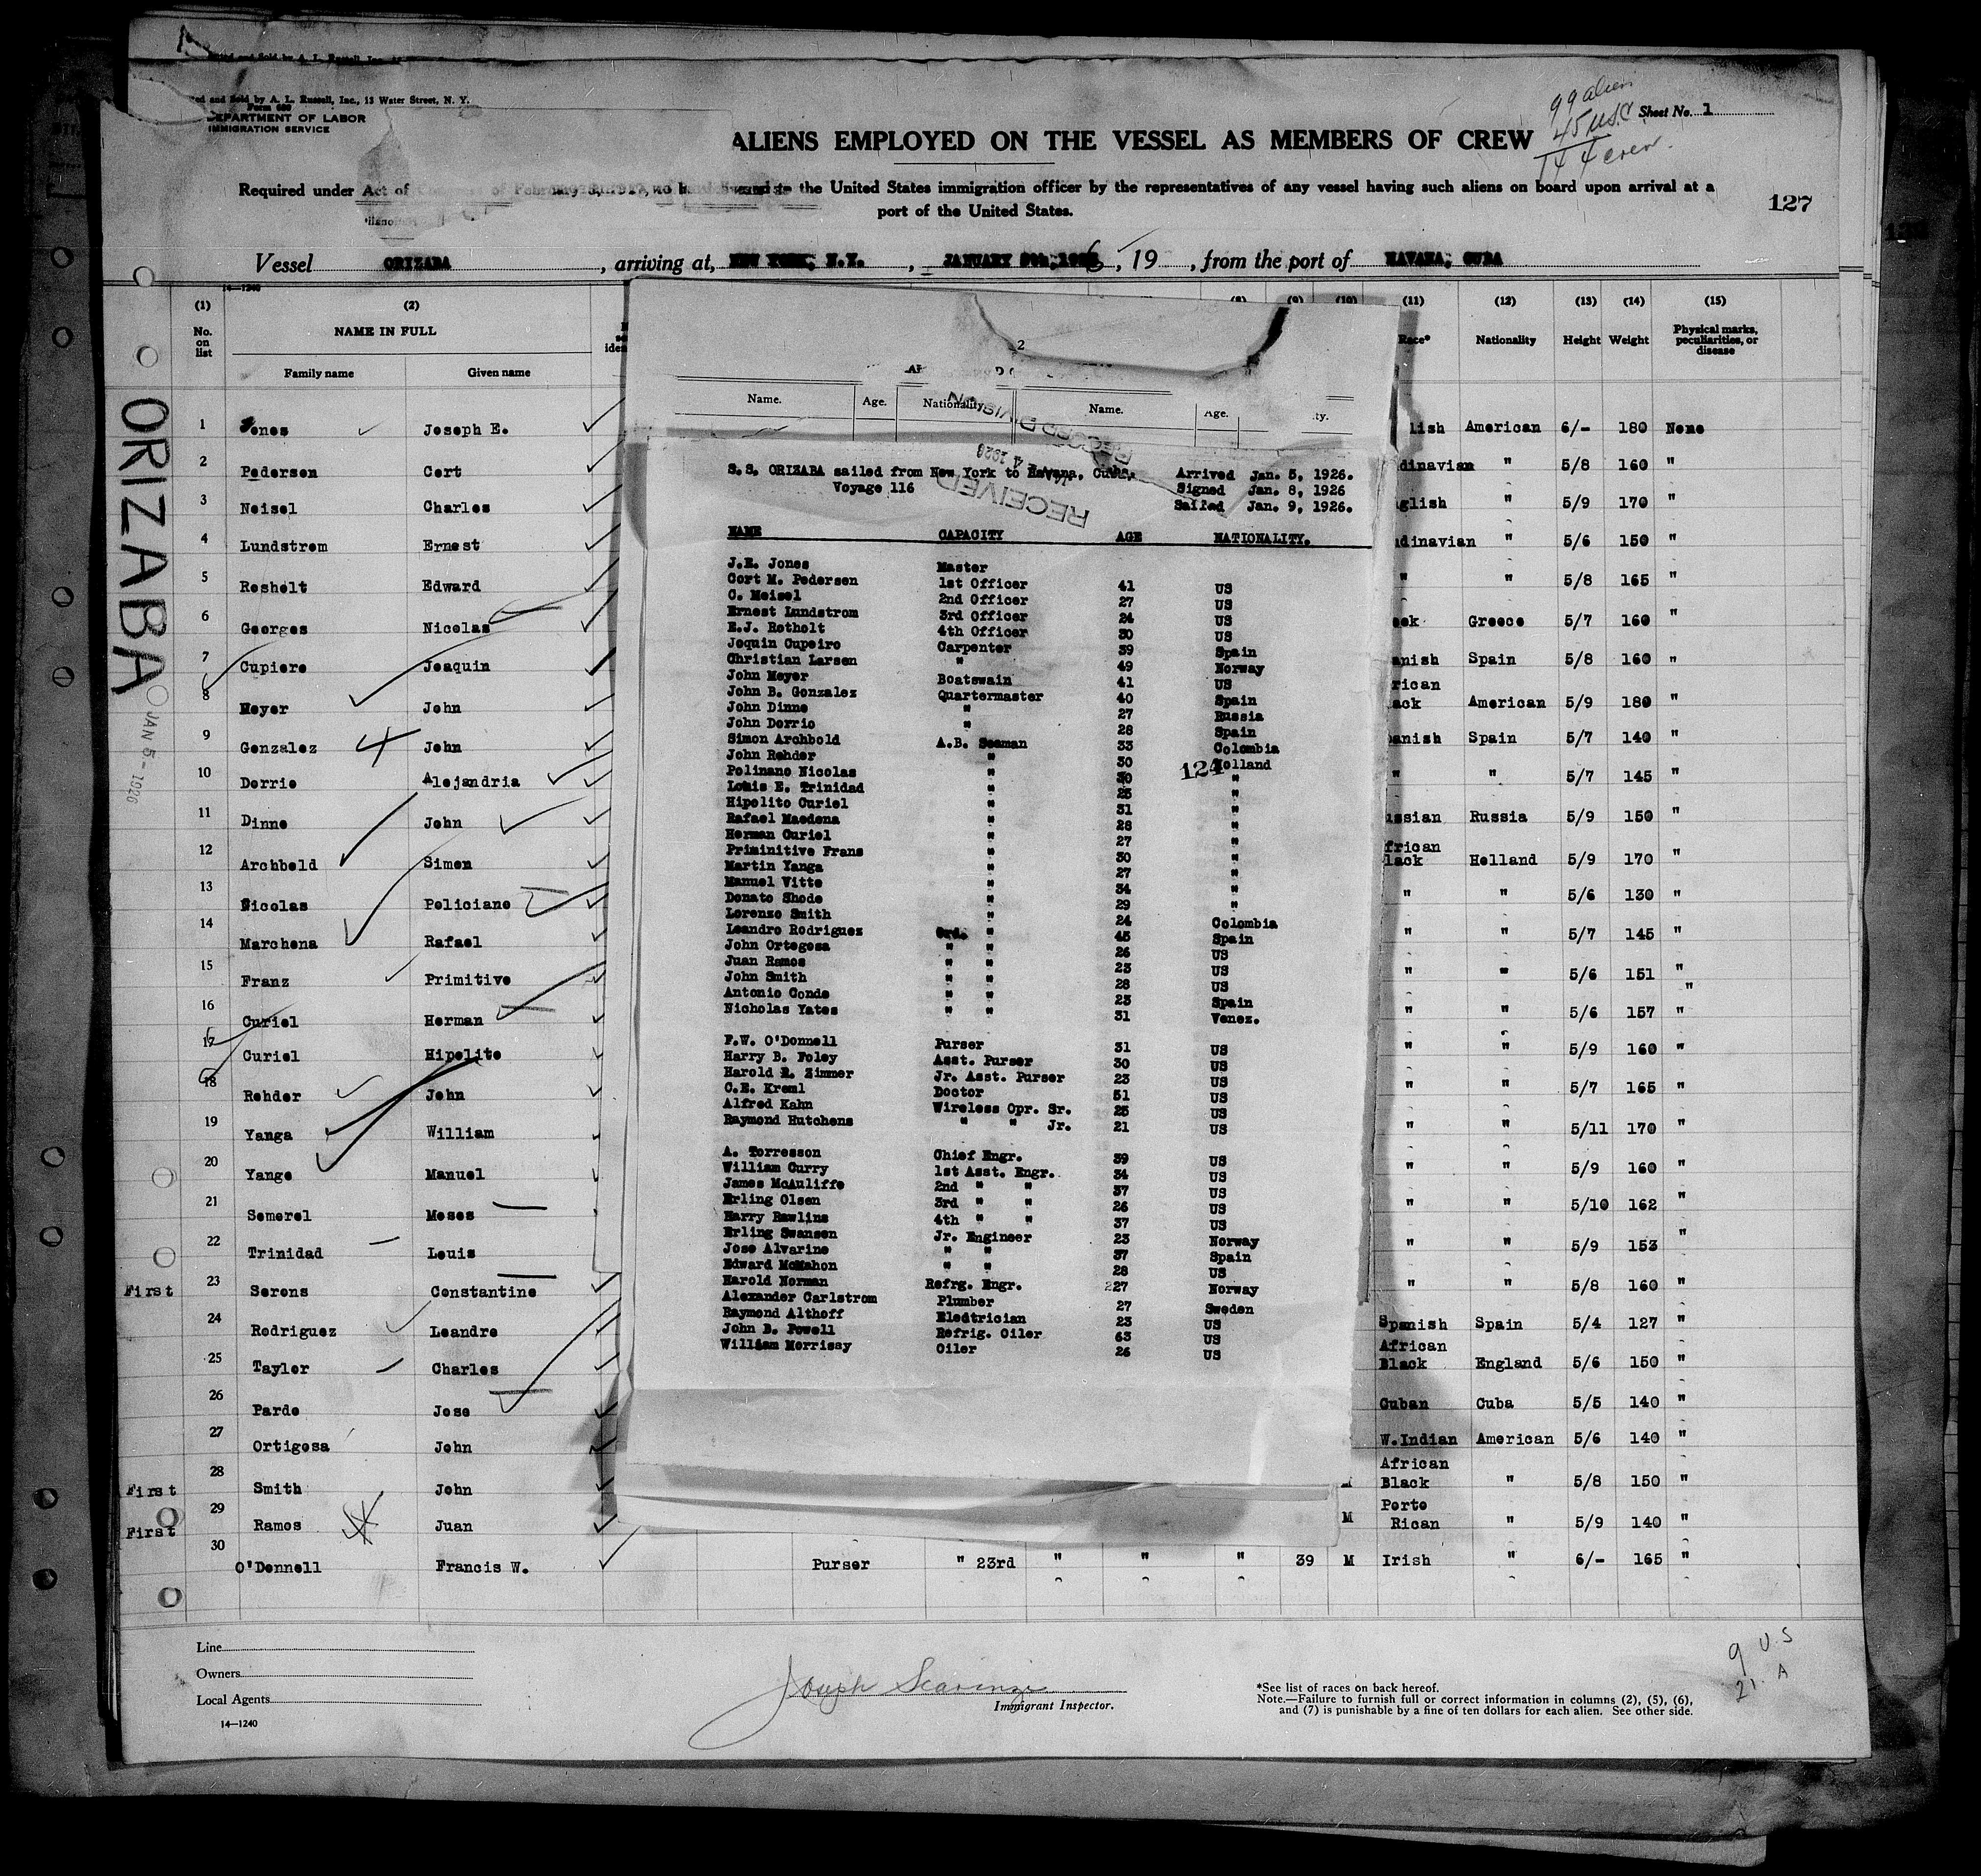 ed and Sold by A. L. Russell, Inc., 13 Water Street, N. Y.
Form 689
DEPARTMENT OF LABOR
IMMIGRATION SERVICE
99 alien
45 USC
144 crew.
Sheet No. 1
ALIENS EMPLOYED ON THE VESSEL AS MEMBERS OF CREW
Required under Act of Congress of February 5, 1917, to be the United States immigration officer by the representatives of any vessel having such aliens on board upon arrival at a
port of the United States.
127
Vessel ORIZABA , arriving at, NEW YORK, N.Y. , JANUARY 1926 , 19 , from the port of HAVANA, CUBA
14—1240
(1) (2) (8) (9) (10) (11) (12) (13) (14) (15)
No. on list NAME IN FULL Race* Nationality Height Weight Physical marks, peculiarities, or disease
Family name Given name
ORIZABA
JAN 5 - 1926
1 Jones Joseph E. lish American 6/- 180 None
2 Pedersen Cort dinavian " 5/8 160 "
3 Neisel Charles glish " 5/9 170 "
4 Lundstrom Ernest dinavian " 5/6 150 "
5 Resholt Edward " " 5/8 165 "
6 Georges Nicolas ek Greece 5/7 160 "
7 Cupiere Joaquin anish Spain 5/8 160 "
8 Meyer John rican ack American 5/9 180 "
9 Gonzalez John anish Spain 5/7 140 "
10 Dorrie Alejandria " " 5/7 145 "
11 Dinne John ussian Russia 5/9 150 "
12 Archbold Simon frican lack Holland 5/9 170 "
13 Nicolas Policiano " " 5/6 130 "
14 Marchena Rafael " " 5/7 145 "
15 Franz Primitive " " 5/6 151 "
16 Curiel Herman " " 5/6 157 "
17 Curiel Hipolito " " 5/9 160 "
18 Rehder John " " 5/7 165 "
19 Yanga William " " 5/11 170 "
20 Yange Manuel " " 5/9 160 "
21 Semerel Moses " " 5/10 162 "
22 Trinidad Louis " " 5/9 153 "
First 23 Serens Constantine " " 5/8 160 "
24 Rodriguez Leandre Spanish Spain 5/4 127 "
25 Tayler Charles African Black England 5/6 150 "
26 Parde Jose Cuban Cuba 5/5 140 "
27 Ortigosa John W.Indian American 5/6 140 "
First 28 Smith John African Black " 5/8 150 "
First 29 Ramos Juan M Porto Rican " 5/9 140 "
30 O'Donnell Francis W. Purser " 23rd " " " 39 M Irish " 6/- 165 "
2
Name. Age. Nationality Name. Age. ty.
RECEIVED
4 1926
RECORD DIVISION
S.S. ORIZABA sailed from New York to Havana, Cuba. Arrived Jan. 5, 1926.
Voyage 116 Signed Jan. 8, 1926
Sailed Jan. 9, 1926.
NAME CAPACITY AGE NATIONALITY.
J.E. Jones Master
Cort M. Pedersen 1st Officer 41 US
C. Meisel 2nd Officer 27 US
Ernest Lundstrom 3rd Officer 24 US
E.J. Rotholt 4th Officer 30 US
Joquin Cupeiro Carpenter 39 Spain
Christian Larsen " 49 Norway
John Meyer Boatswain 41 US
John B. Gonzalez Quartermaster 40 Spain
John Dinne " 27 Russia
John Dorrio " 28 Spain
Simon Archbold A.B. Seaman 33 Colombia
John Rehder " 30 Holland
124
Polinano Nicolas " 30 "
Louis E. Trinidad " 25 "
Hipolito Curiel " 31 "
Rafael Maedena " 28 "
Herman Curiel " 27 "
Priminitive Frans " 30 "
Martin Yanga " 27 "
Manuel Vitte " 34 "
Donato Shode " 29 "
Lorenzo Smith " 24 Colombia
Leandro Rodriguez Ord. " 45 Spain
John Ortegosa " " 26 US
Juan Ramos " " 23 US
John Smith " " 28 US
Antonio Conde " " 23 Spain
Nicholas Yates " " 31 Venez.
F.W. O'Donnell Purser 31 US
Harry B. Foley Asst. Purser 30 US
Harold R. Zimmer Jr. Asst. Purser 23 US
C.E. Kreml Doctor 51 US
Alfred Kahn Wireless Opr. Sr. 25 US
Raymond Hutchens " " Jr. 21 US
A. Torresson Chief Engr. 39 US
William Curry 1st Asst. Engr. 34 US
James McAuliffe 2nd " " 37 US
Erling Olsen 3rd " " 26 US
Harry Rawlins 4th " " 37 US
Erling Swansen Jr. Engineer 23 Norway
Jose Alvarine " " 37 Spain
Edward McMahon " " 28 US
Harold Norman Refrg. Engr. 27 Norway
Alexander Carlstrom Plumber 27 Sweden
Raymond Althoff Electrician 23 US
John B. Powell Refrig. Oiler 63 US
William Morrisay Oiler 26 US
Line
Owners
Local Agents
14—1240
Joseph Scarinzi
Immigrant Inspector.
*See list of races on back hereof.
Note.—Failure to furnish full or correct information in columns (2), (5), (6),
and (7) is punishable by a fine of ten dollars for each alien. See other side.
9 U.S
21 A